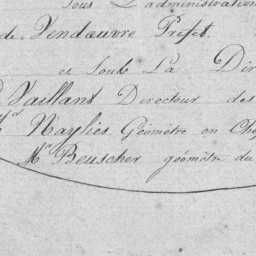 Sous L'administration
de Vendœuvre Préfet.
et Sous La Dir
Vaillant Directeur des
Naylies Géomètre en Ch
Mr Beuscher géomètre du